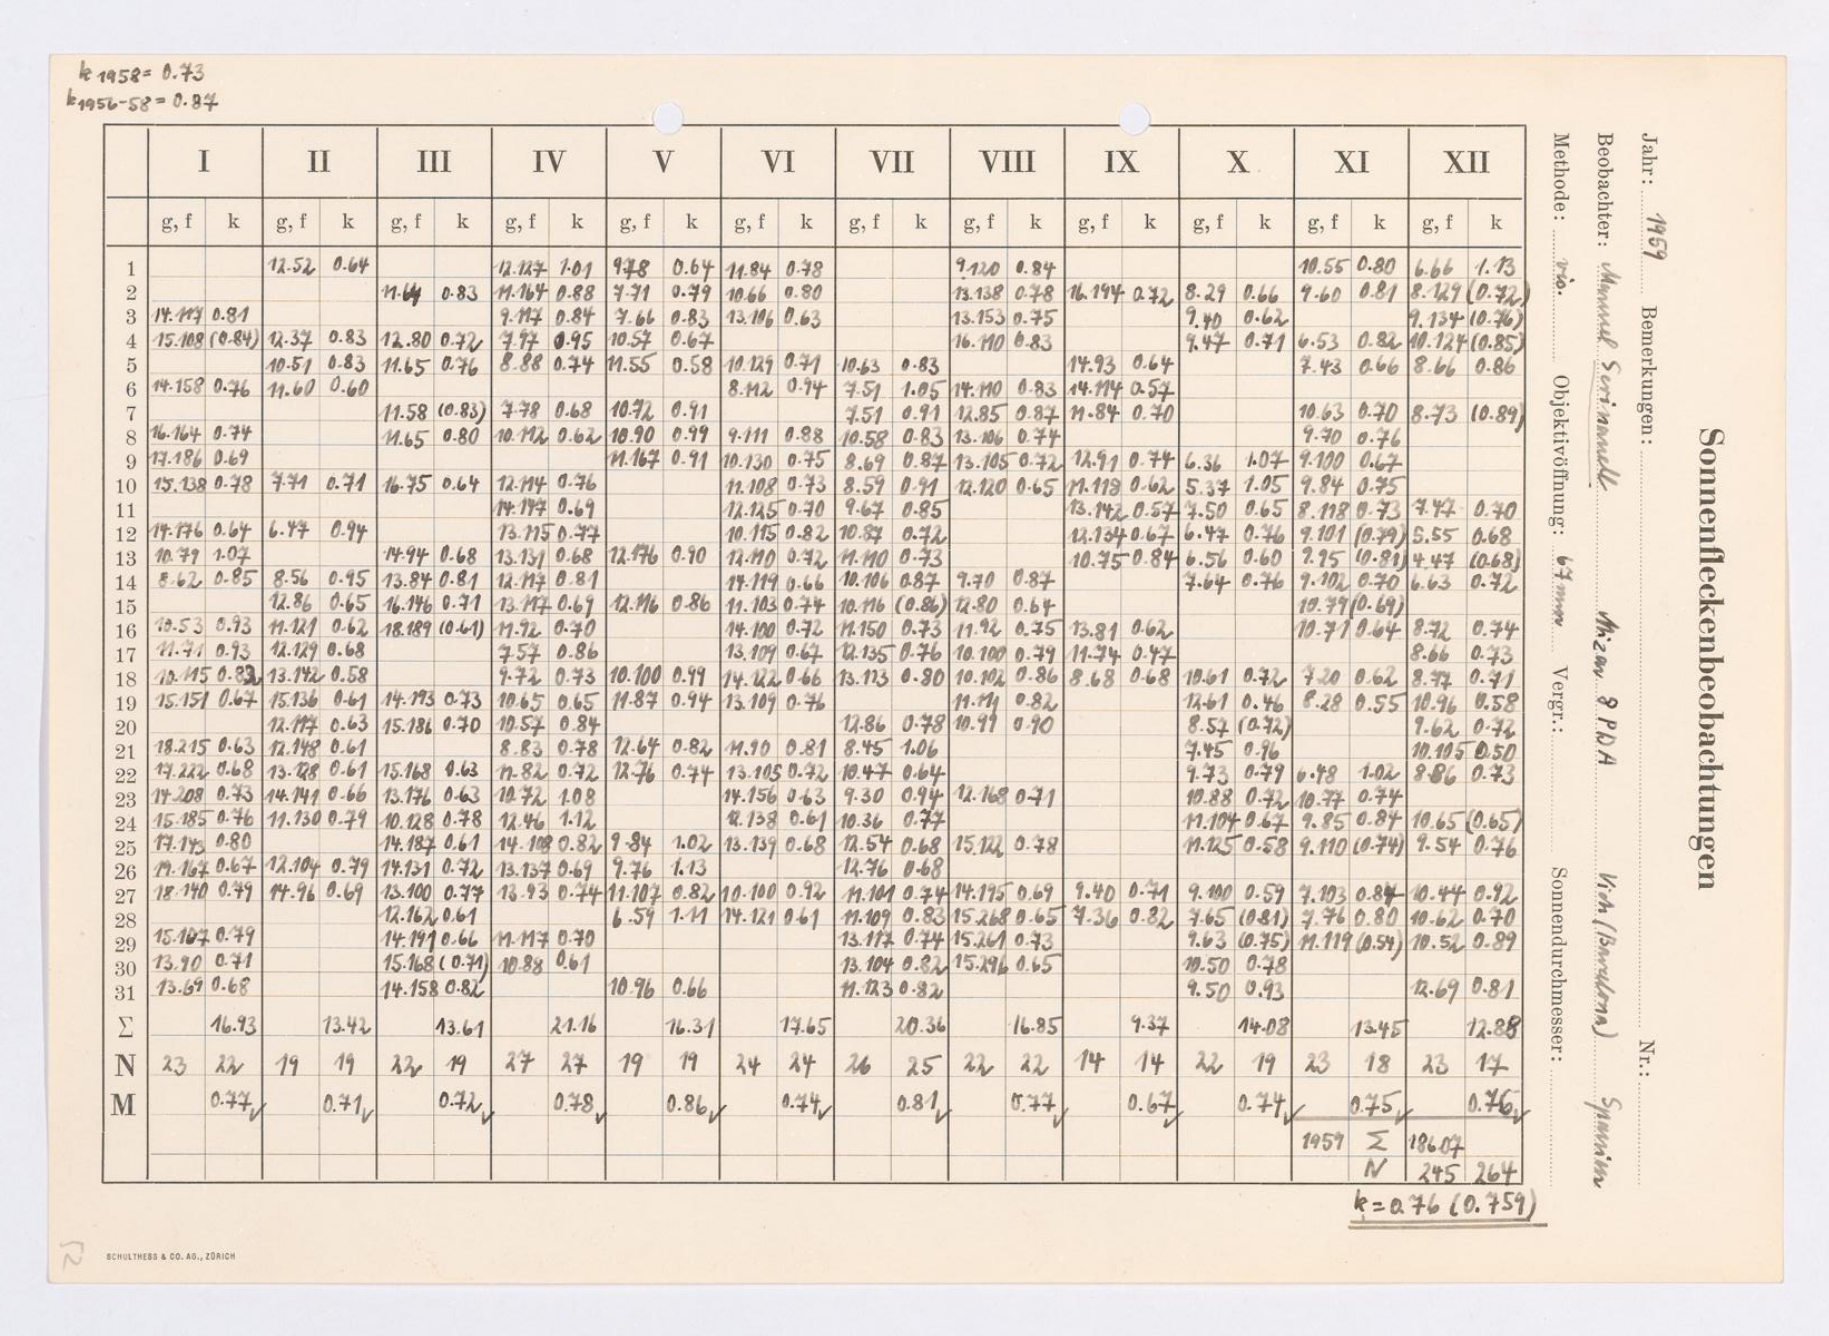 k 1958 = 0.73
k 1956-58 = 0.87
I II III IV V VI VII VIII IX X XI XII
g, f k g, f k g, f k g, f k g, f k g, f k g, f k g, f k g, f k g, f k g, f k g, f k
1 12.52 0.64 12.127 1.01 9.78 0.64 11.84 0.78 9.120 0.84 10.55 0.80 6.66 1.13
2 11.64 0.83 11.164 0.88 7.71 0.79 10.66 0.80 13.138 0.78 16.194 0.72 8.29 0.66 9.60 0.81 8.129 (0.72)
3 14.117 0.81 9.117 0.84 7.66 0.83 13.106 0.63 13.153 0.75 9.40 0.62 9.134 (0.76)
4 15.108 (0.84) 12.37 0.83 12.80 0.72 7.97 0.95 10.57 0.67 16.110 0.83 9.47 0.71 6.53 0.82 10.124 (0.85)
5 10.51 0.83 11.65 0.76 8.88 0.74 11.55 0.58 10.129 0.71 10.63 0.83 14.93 0.64 7.43 0.66 8.66 0.86
6 14.158 0.76 11.60 0.60 8.112 0.94 7.51 1.05 14.110 0.83 14.114 0.57
7 11.58 (0.83) 7.78 0.68 10.72 0.91 7.51 0.91 12.85 0.87 11.84 0.70 10.63 0.70 8.73 (0.89)
8 16.164 0.74 11.65 0.80 10.112 0.62 10.90 0.99 9.111 0.88 10.58 0.83 13.106 0.74 9.70 0.76
9 17.186 0.69 11.167 0.91 10.130 0.75 8.69 0.87 13.105 0.72 12.91 0.74 6.36 1.07 9.100 0.67
10 15.138 0.78 7.71 0.71 16.75 0.64 12.114 0.76 11.108 0.73 8.59 0.91 12.120 0.65 11.118 0.62 5.37 1.05 9.84 0.75
11 14.147 0.69 12.125 0.70 9.67 0.85 13.142 0.57 7.50 0.65 8.118 0.73 7.47 0.70
12 14.176 0.64 6.47 0.94 13.115 0.77 10.115 0.82 10.87 0.72 12.134 0.67 6.47 0.76 9.101 (0.79) 5.55 0.68
13 10.79 1.07 14.94 0.68 13.131 0.68 12.176 0.90 12.110 0.72 11.110 0.73 10.75 0.84 6.56 0.60 7.95 (0.81) 4.47 (0.68)
14 8.62 0.85 8.56 0.95 13.84 0.81 12.117 0.81 14.119 0.66 10.106 0.87 9.70 0.87 7.64 0.76 9.102 0.70 6.63 0.72
15 12.86 0.65 16.146 0.71 13.117 0.69 12.116 0.86 11.103 0.74 10.116 (0.86) 12.80 0.64 10.79 (0.69)
16 10.53 0.93 11.121 0.62 18.189 (0.61) 11.92 0.70 14.100 0.72 11.150 0.73 11.92 0.75 13.81 0.62 10.71 0.64 8.72 0.74
17 11.71 0.93 12.129 0.68 7.57 0.86 13.109 0.67 12.135 0.76 10.100 0.79 11.74 0.47 8.66 0.73
18 10.115 0.83 13.142 0.58 9.72 0.73 10.100 0.99 14.122 0.66 13.123 0.80 10.102 0.86 8.68 0.68 10.61 0.72 7.20 0.62 8.77 0.71
19 15.151 0.67 15.136 0.61 14.193 0.73 10.65 0.65 11.87 0.94 13.109 0.76 11.111 0.82 12.61 0.46 8.28 0.55 10.96 0.58
20 12.117 0.63 15.186 0.70 10.57 0.84 12.86 0.78 10.91 0.90 8.57 (0.72) 9.62 0.72
21 18.215 0.63 12.148 0.61 8.83 0.78 12.64 0.82 11.90 0.81 8.45 1.06 7.45 0.96 10.105 0.50
22 17.222 0.68 13.128 0.61 15.168 0.63 11.82 0.72 12.76 0.74 13.105 0.72 10.47 0.64 9.73 0.79 6.48 1.02 8.86 0.73
23 14.208 0.73 14.141 0.66 13.176 0.63 10.72 1.08 14.156 0.63 9.30 0.94 12.168 0.71 10.88 0.72 10.77 0.74
24 15.185 0.76 11.130 0.79 10.128 0.78 12.46 1.12 12.138 0.61 10.36 0.77 11.104 0.67 9.85 0.84 10.65 (0.65)
25 17.143 0.80 14.187 0.61 14.108 0.82 9.84 1.02 13.139 0.68 12.54 0.68 15.122 0.78 11.125 0.58 9.110 (0.74) 9.54 0.76
26 19.167 0.67 12.104 0.79 14.131 0.72 13.137 0.69 9.76 1.13 12.76 0.68
27 18.140 0.79 14.96 0.69 13.100 0.77 13.93 0.74 11.107 0.82 10.100 0.92 11.101 0.74 14.195 0.69 9.40 0.71 9.100 0.59 7.103 0.84 10.44 0.92
28 12.162 0.61 6.59 1.11 14.121 0.61 11.109 0.83 15.268 0.65 7.36 0.82 7.65 (0.81) 7.76 0.80 10.62 0.70
29 15.107 0.79 14.191 0.66 11.117 0.70 13.117 0.74 15.261 0.73 9.63 (0.75) 11.119 (0.54) 10.52 0.89
30 13.90 0.71 15.168 (0.71) 10.88 0.61 13.104 0.82 15.296 0.65 10.50 0.78
31 13.69 0.68 14.158 0.82 10.96 0.66 11.123 0.82 9.50 0.93 12.69 0.81
Σ 16.93 13.42 13.61 21.16 16.31 17.65 20.36 16.85 9.37 14.08 13.45 12.88
N 23 22 19 19 22 19 27 27 19 19 24 24 26 25 22 22 14 14 22 19 23 18 23 17
M 0.77✓ 0.71✓ 0.72✓ 0.78✓ 0.86✓ 0.74✓ 0.81✓ 0.77✓ 0.67✓ 0.74✓ 0.75✓ 0.76✓
1959 Σ 186.07
N 245 264
k = 0.76 (0.759)
SCHULTHESS & CO. AG., ZÜRICH
Sonnenfleckenbeobachtungen
Jahr: 1959 Bemerkungen: Nr.:
Beobachter: Manuel Vich (Barcelona) Spanien
Methode: vis. Objektivöffnung: 67 mm Vergr.: Sonnendurchmesser: